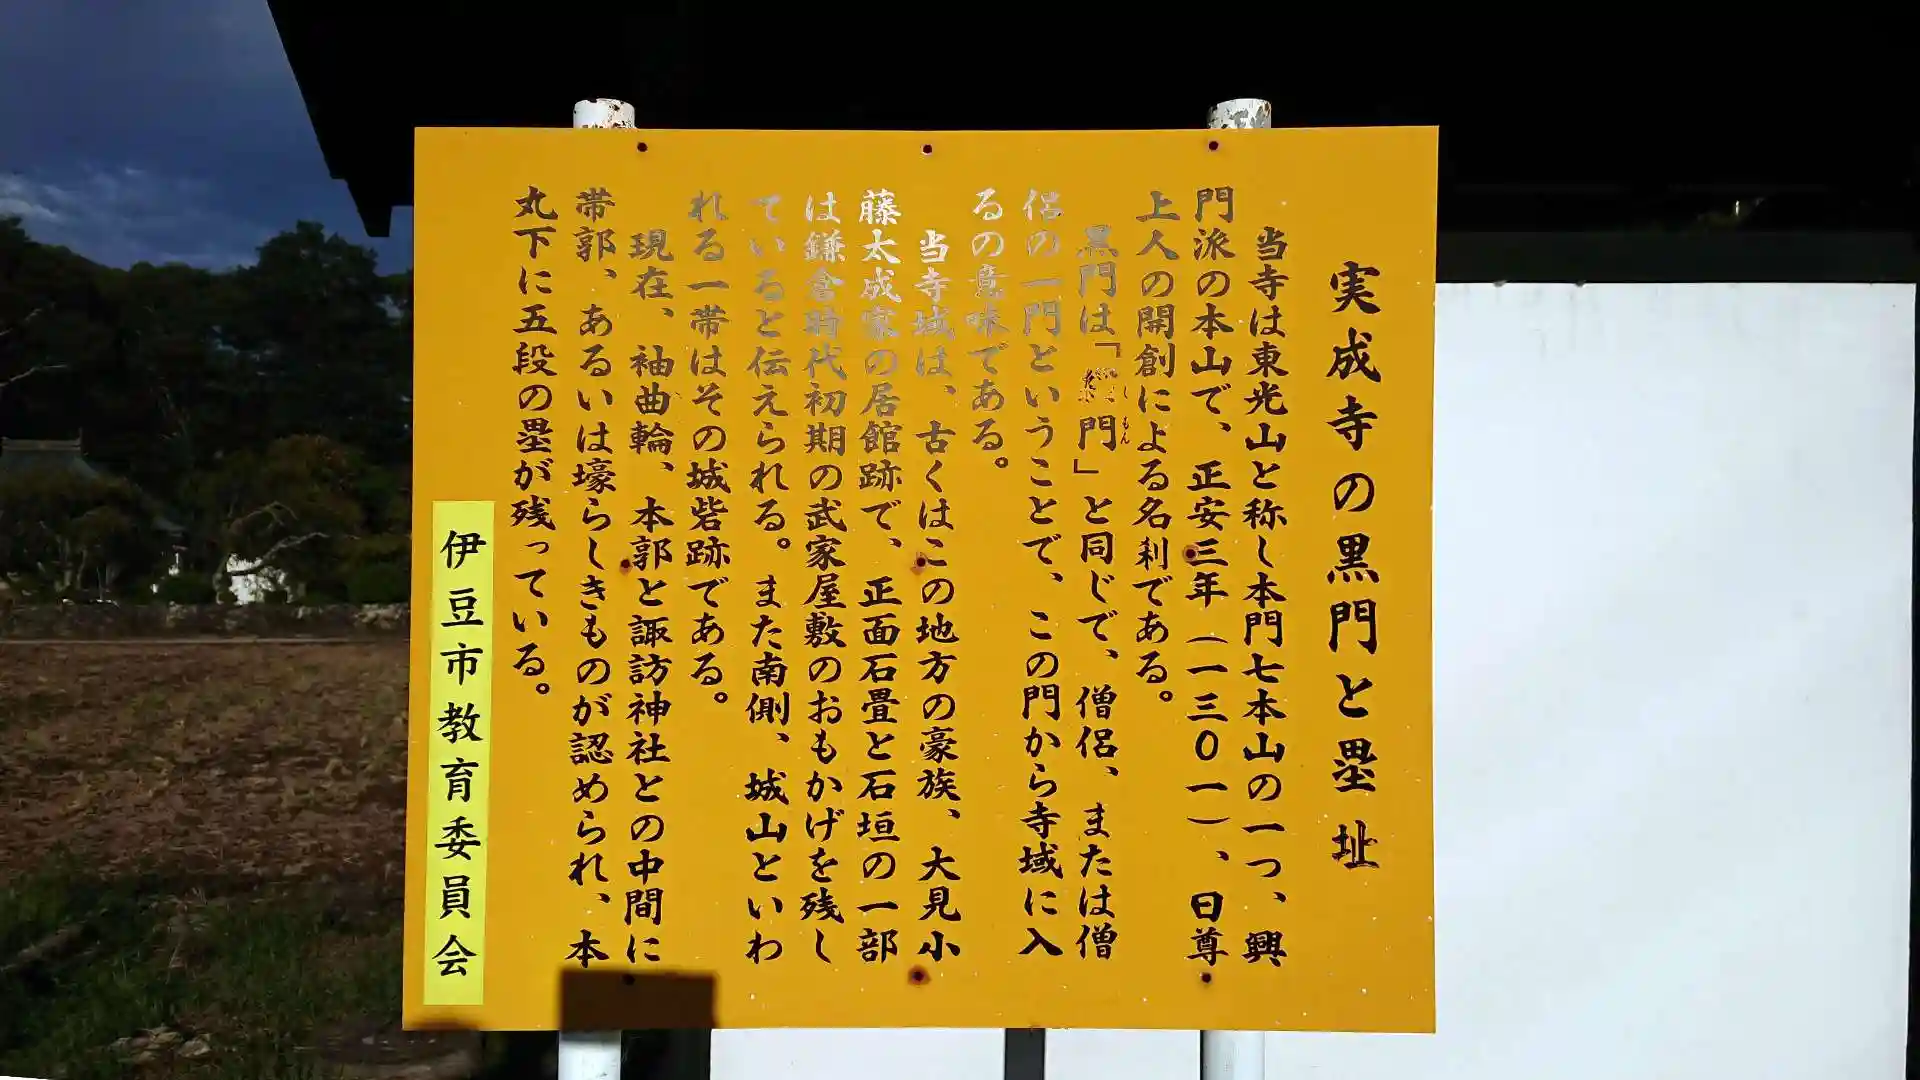 実成寺の黒門と塁址
当寺は東光山と称し本門七本山の一つ、興
門派の本山で、正安三年（一三〇一）、日尊
上人の開創による名刹である。
黒門は「緇門」と同じで、僧侶、または僧
しもん
侶の一門ということで、この門から寺域に入
るの意味である。
当寺域は、古くはこの地方の豪族、大見小
藤太成家の居館跡で、正面石畳と石垣の一部
は鎌倉時代初期の武家屋敷のおもかげを残し
ていると伝えられる。また南側、城山といわ
れる一帯はその城砦跡である。
現在、袖曲輪、本郭と諏訪神社との中間に
帯郭、あるいは壕らしきものが認められ、本
丸下に五段の塁が残っている。
伊豆市教育委員会